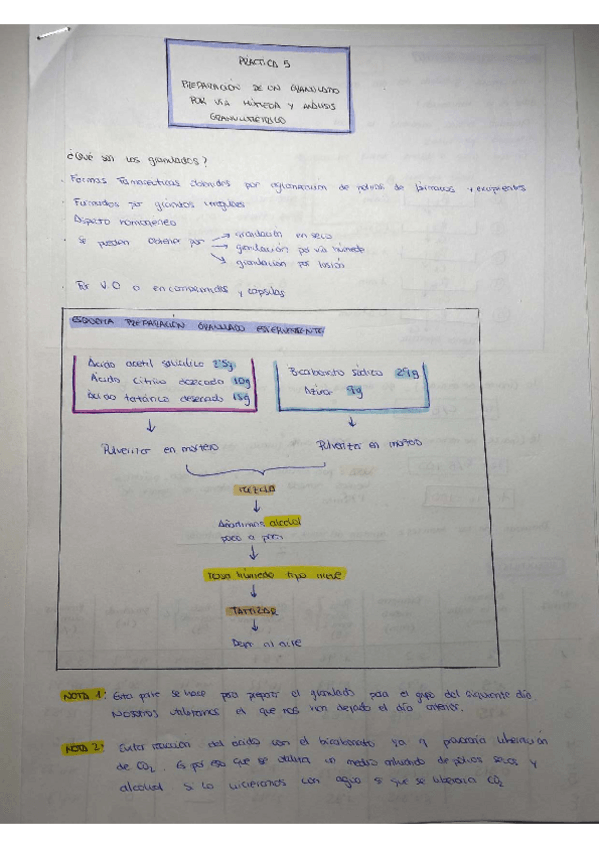 PRÁCTICA 5
PREPARACIÓN DE UN GRANULADO
POR VÍA HÚMEDA Y ANÁLISIS
GRANULOMÉTRICO
¿Qué son los granulados?
· Formas farmacéuticas obtenidas por aglomeración de polvos de fármacos y excipientes
· Formados por gránulos irregulares
Aspecto homogéneo
· Se pueden obtener por → granulación en seco
→ granulación por vía húmeda
→ granulación por fusión
· V.O o en comprimidos y cápsulas
ESQUEMA PREPARACIÓN GRANULADO EFERVESCENTE
Ácido acetil salicílico 25g
Ácido cítrico desecado 10g
Ácido tartárico desecado
Bicarbonato sódico
Azúcar
Pulverizar en mortero
Pulverizar en mortero
MEZCLA
Añadimos alcohol
poco a poco
masa húmeda tipo nieve
TAMIZAR
Dejar al aire
NOTA 1: Esta parte se hace para preparar el granulado para el grupo del siguiente día
Nosotros utilizamos el que nos han dejado el día anterior.
NOTA 2: Evitar reacción del ácido con el bicarbonato ya q provocaría liberación
de CO2. Es por eso que se utiliza un medio de polvos secos y
alcohol si lo hiciéramos con agua si que se liberaría CO2